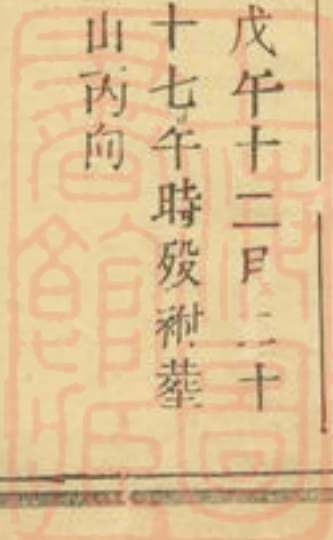 戊午十二月二十
十七午時殁祔塟
山丙向